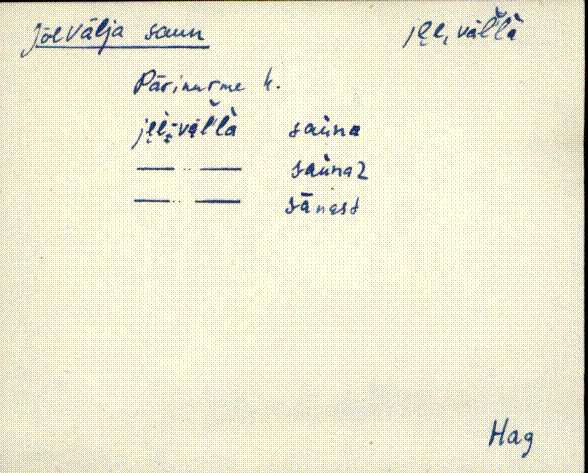 Jõeväljа saun jẹẹ, väl̆l̀à
Pärinurme k.
jẹẹ̀-väl̆l̀à saùna
— ·· — saùnaz
— ·· — sānast
Hag